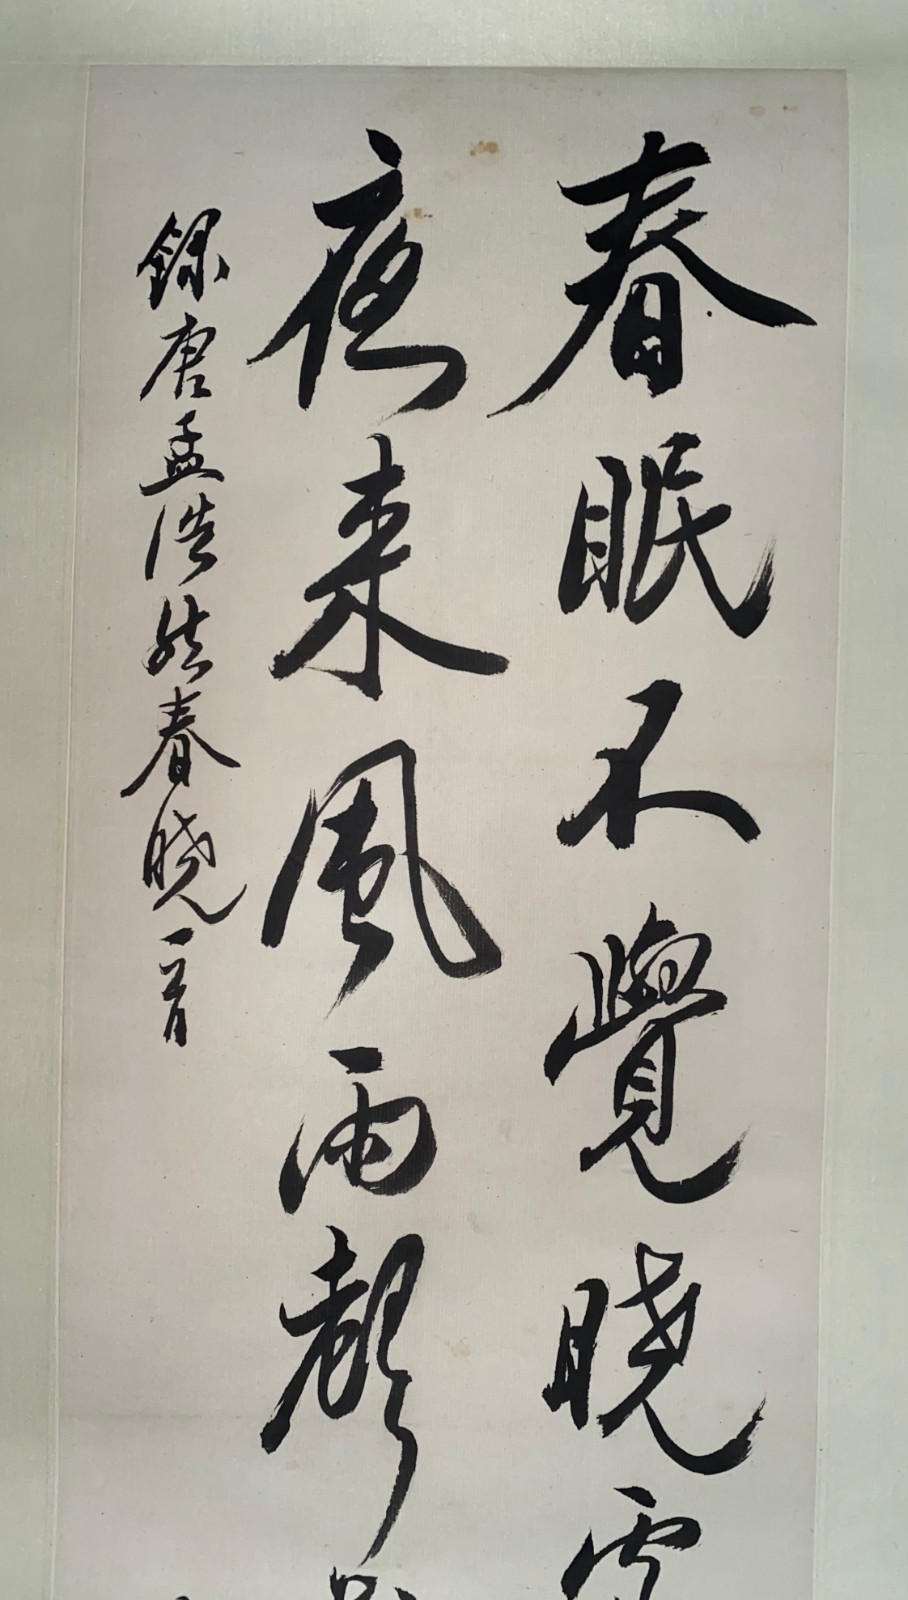 春眠不覺曉處
夜来風雨聲
錄唐孟浩然春曉一首